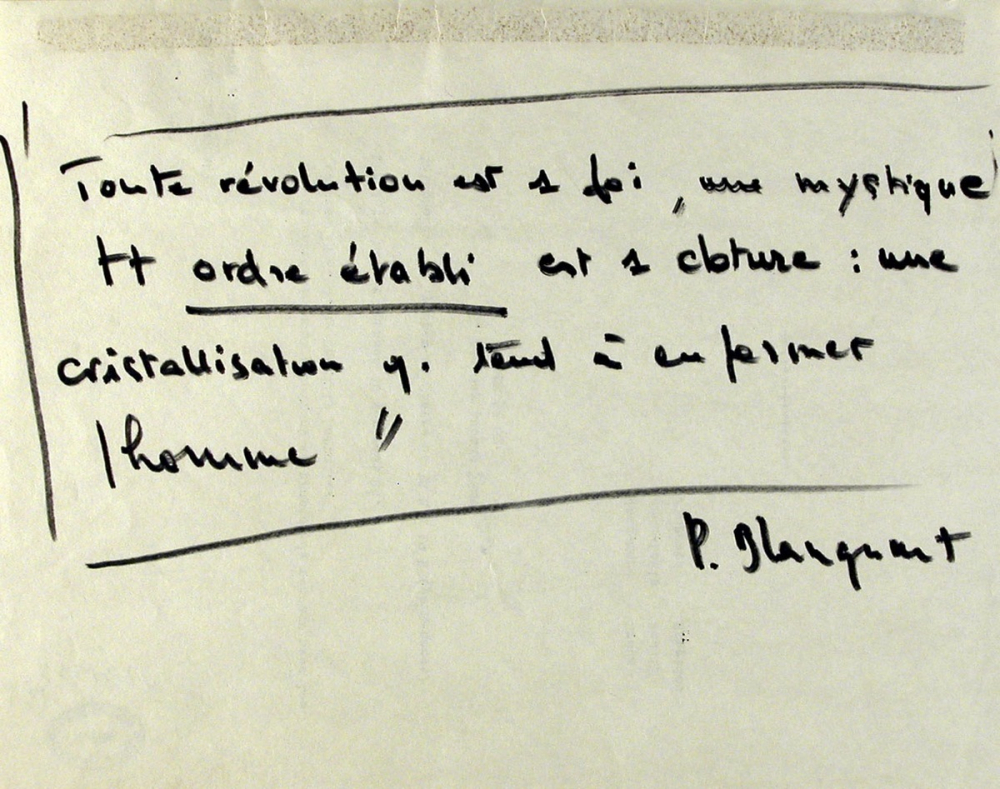 Toute révolution est 1 foi, une mystique
tt ordre établi est 1 cloture : une
cristallisation q. tend à enfermer
l'homme "
P. Blanquart